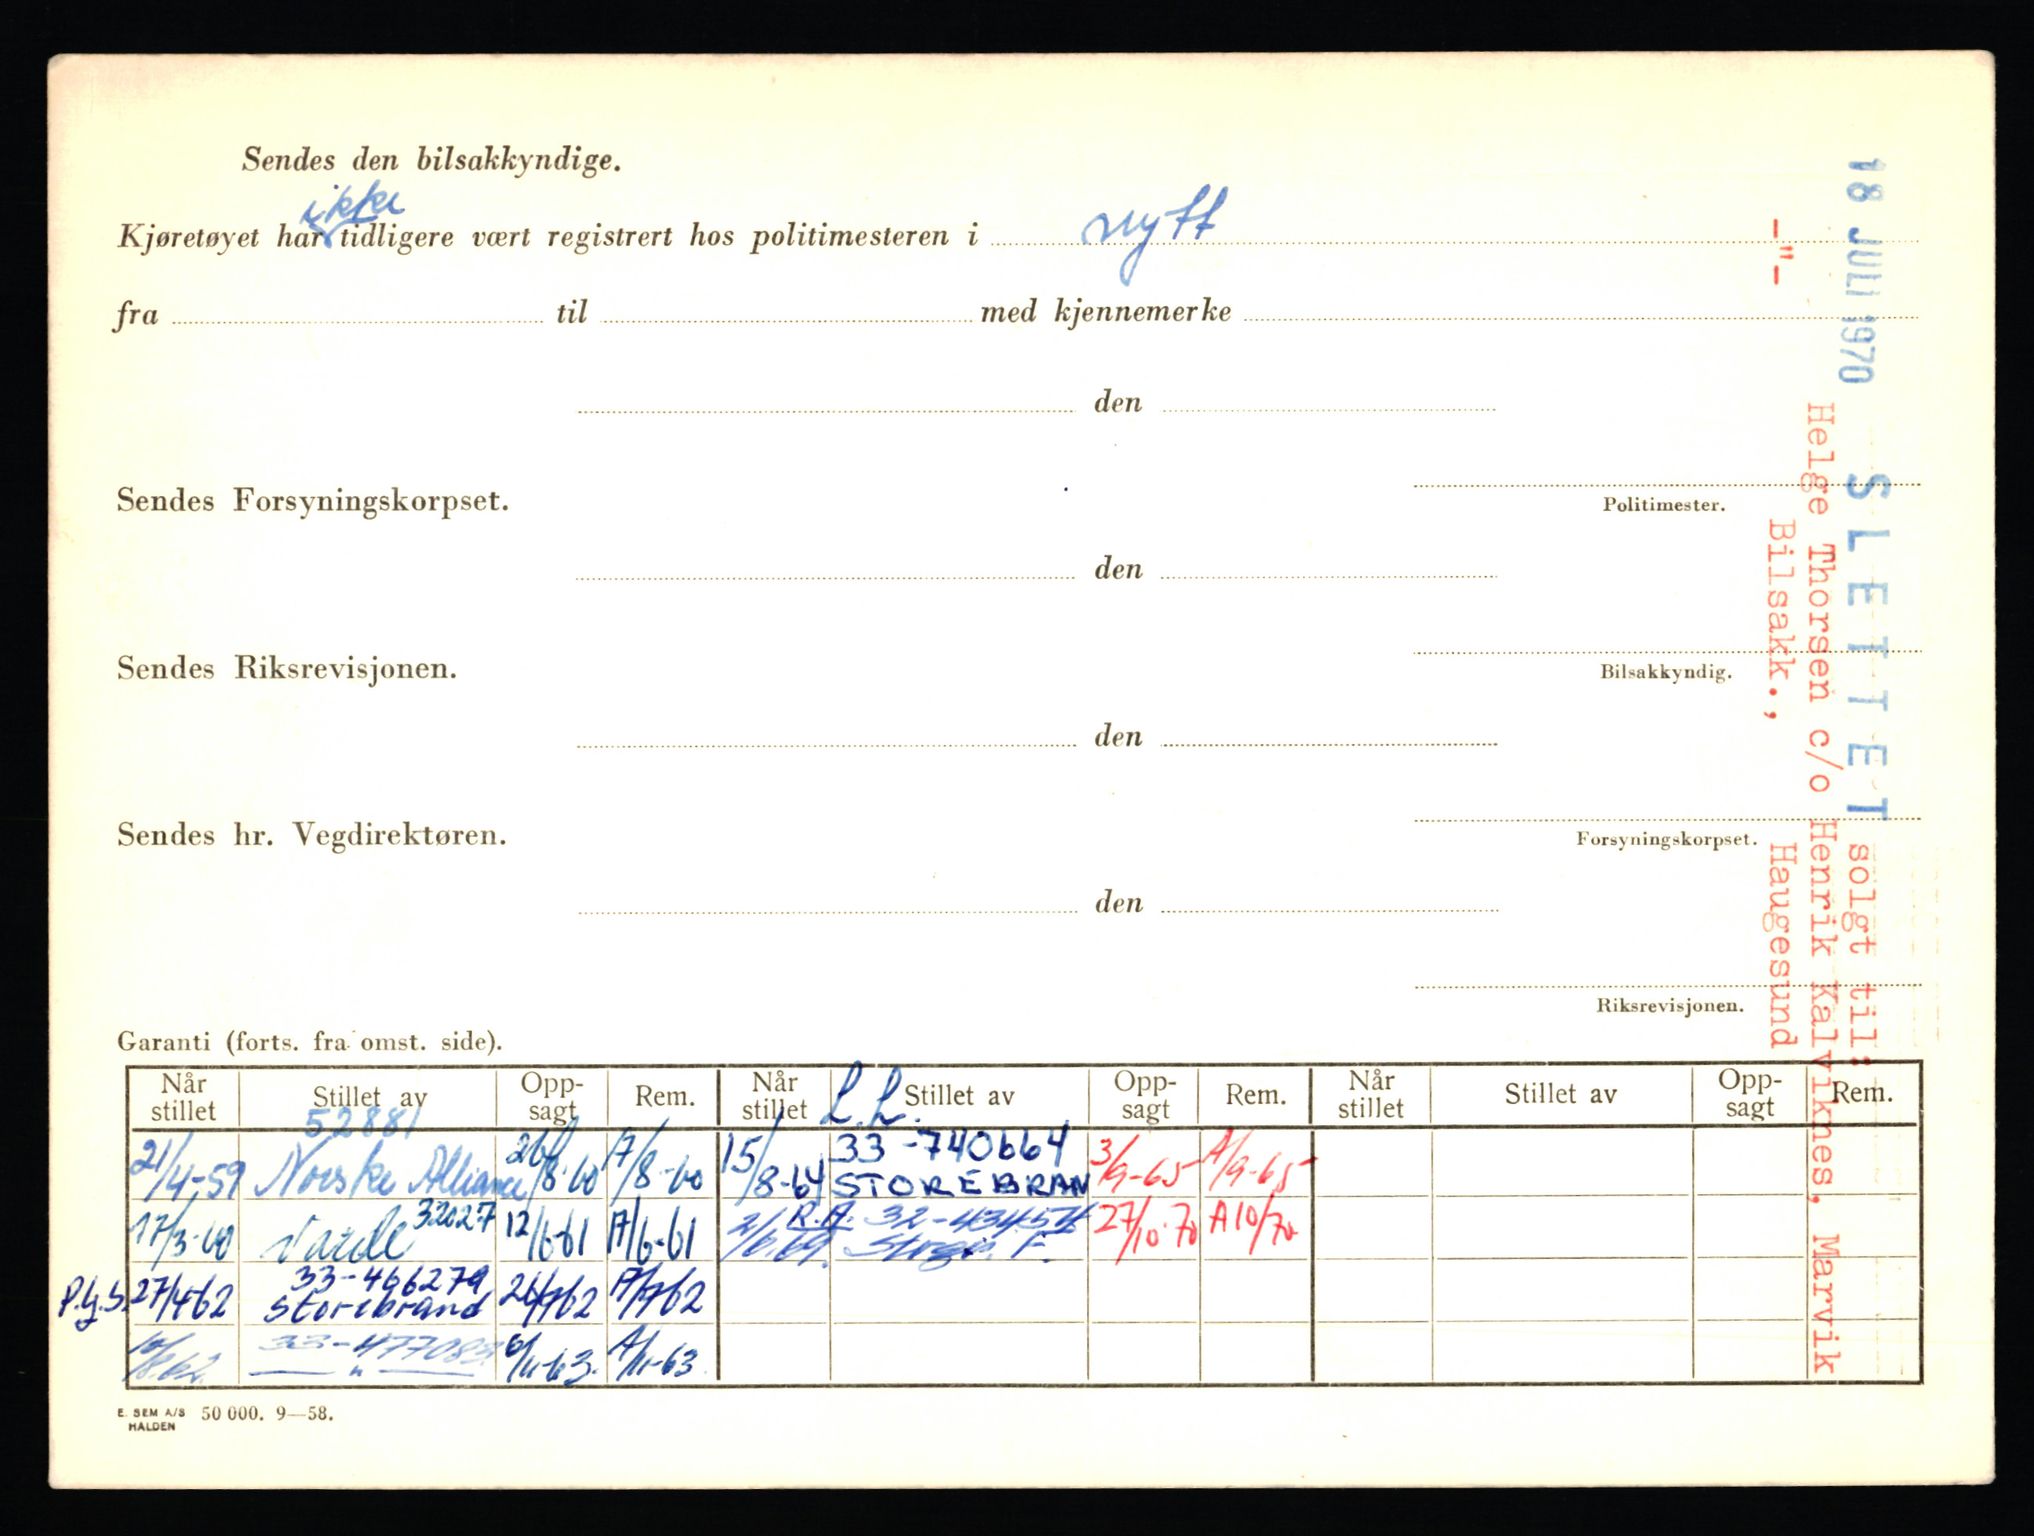 Sendes den bilsakkyndige.
ikke
Kjøretøyet har tidligere vært registrert hos politimesteren i nytt
fra til med kjennemerke
den
Politimester.
Sendes Forsyningskorpset.
den
Bilsakkyndig.
Sendes Riksrevisjonen.
den
Forsyningskorpset.
Sendes hr. Vegdirektøren.
den
Riksrevisjonen.
18 JULI 1970 SLETTET solgt til:
Helge Thorsen c/o Henrik Kalviknes, Marvik
-"- Bilsakk., Haugesund
Garanti (forts. fra omst. side).
Når stillet Stillet av Opp-sagt Rem. Når stillet Stillet av Opp-sagt Rem. Når stillet Stillet av Opp-sagt Rem.
L.L.
52881 33-740664
21/4-59 Norske Alliance 26/8-60 A/8-60 15/8-64 STOREBRAN 3/9-65 A/9-65
17/3-60 Varde 32027 12/6-61 A/6-61 2/6.69. R.A. 32-43457 27/10.70 A10/70
P.g.s. 27/4-62 33-466279 Storebrand 26/7-62 A/7-62
10/8.62. 33-477083 —"— 6/11-63. A/11-63.
E. SEM A/S HALDEN 50 000. 9—58.